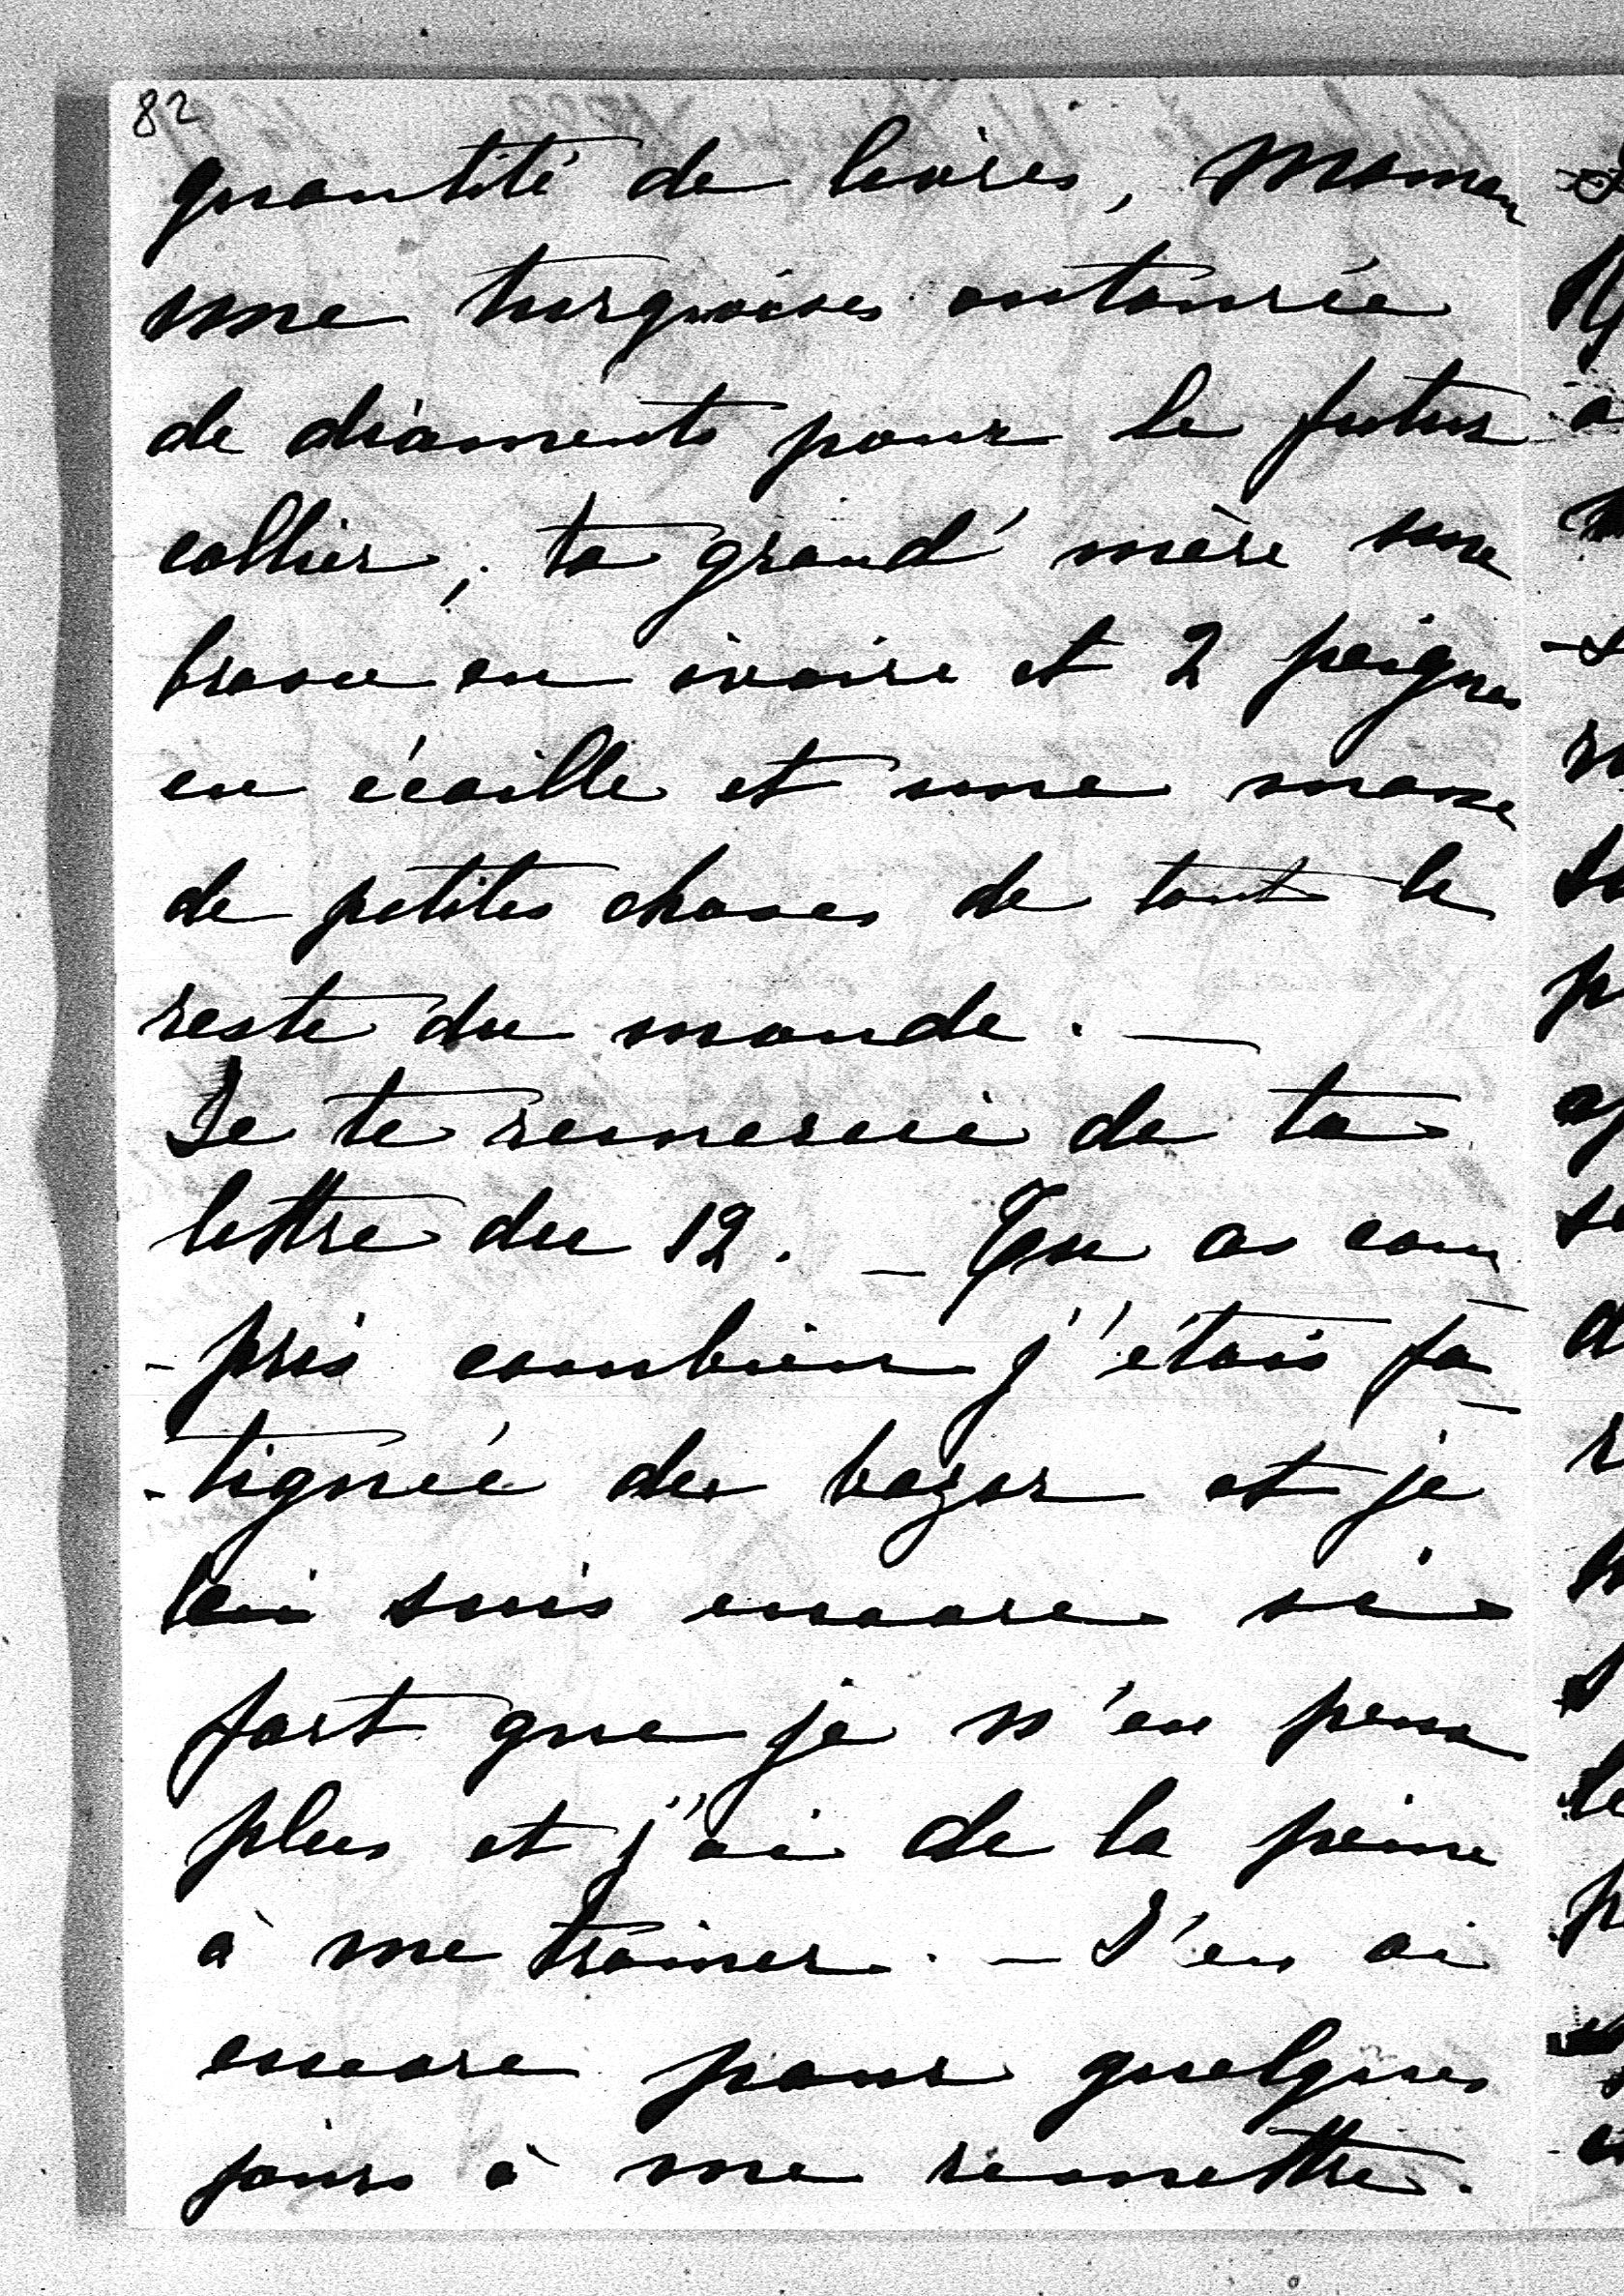 82
quantité de livres, Maman
une turquoises entourée
de diaments pour le futur
collier, ta grand' mère une
brosse en ivoire et 2 peignes
en écaille et une masse
de petites choses de tout le
reste du monde. —
Je te remercie de ta
lettre du 12. — Tu as com
-pris combien j'étais fa-
-tiguée du bazar et je
suis encore si
fort que je n'en peux
plus et j'ai de la peine
à me trainer. — J'en ai
encore pour quelques
jours à me remettre.